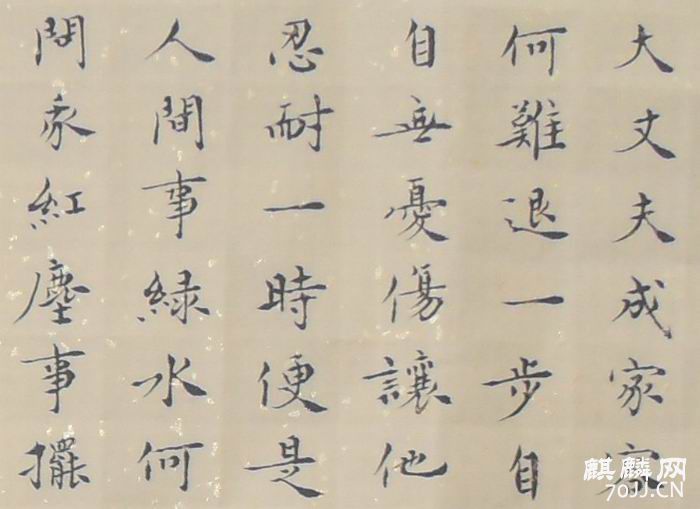 大丈夫成家家
何難退一步自
自無憂傷讓他
忍耐一時便是
人間事緑水何
問永紅塵事擺
麒麟网
70JJ.CN